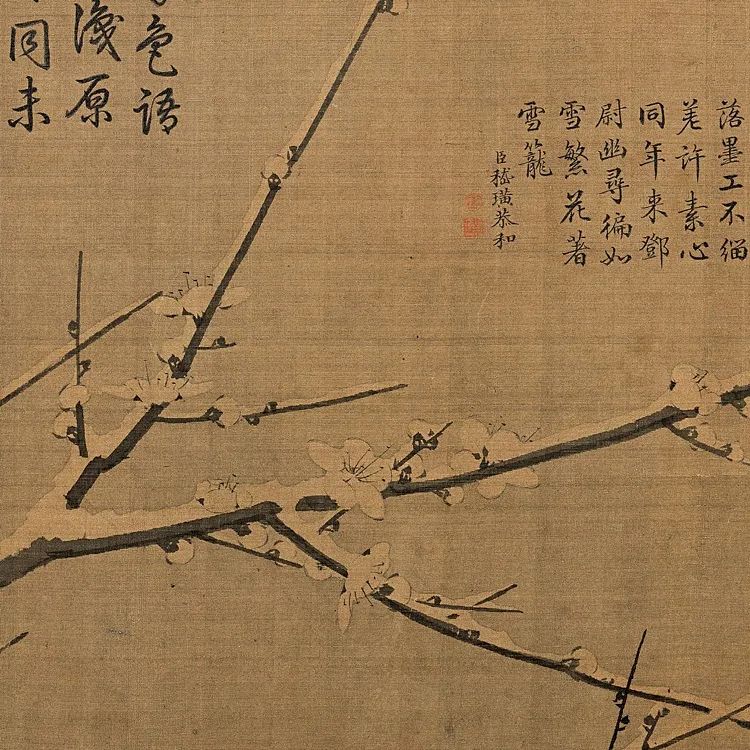 落墨工不緇
差許素心
同年来鄧
尉幽尋徧如
雪繁花著
雪籠
臣嵇璜恭和
色語
淺原
同未